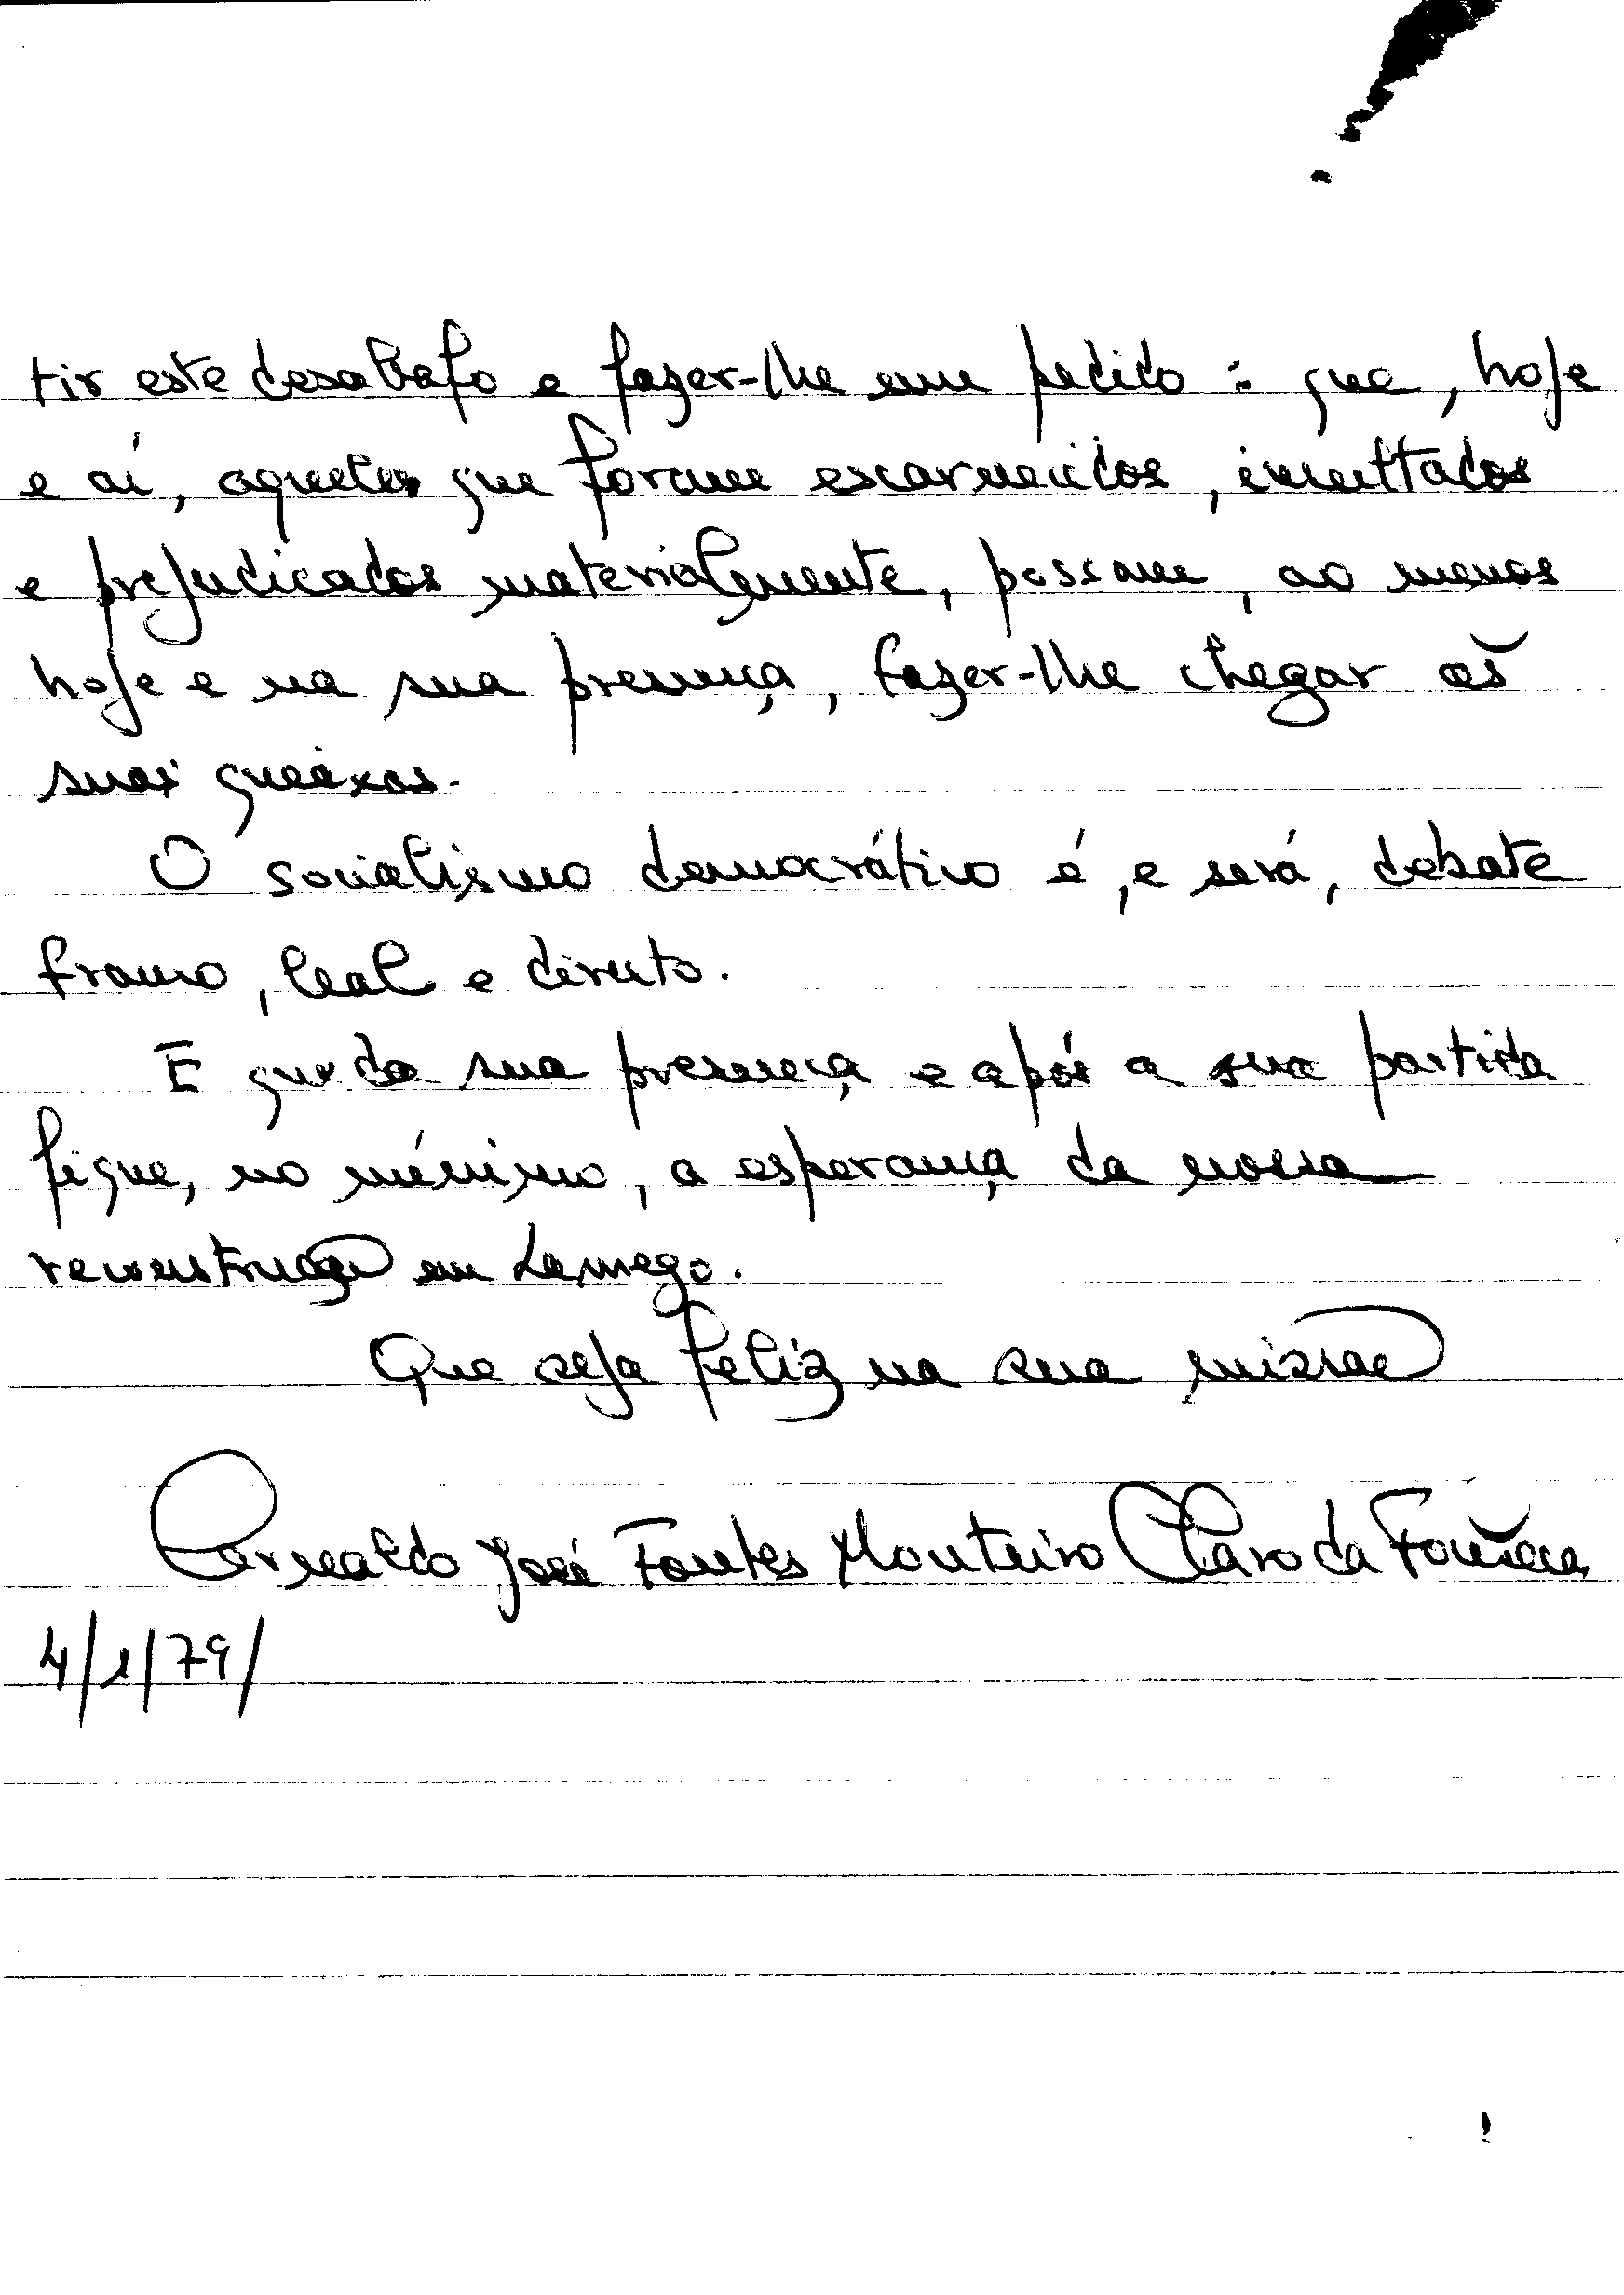 tir este desabafo e fazer-lhe um pedido: que, hoje
e aí, aqueles que foram escarnecidos, insultados
e prejudicados materialmente, possam, ao menos
hoje e na sua presença, fazer-lhe chegar as
suas queixas.
O socialismo democrático é, e será, debate
franco, leal e directo.
E que da sua presença e após a sua partida
fique, no mínimo, a esperança da nossa
reconstrução em Lamego.
Que seja feliz na sua missão
José Fontes Monteiro Claro da Fonseca
4/1/79/